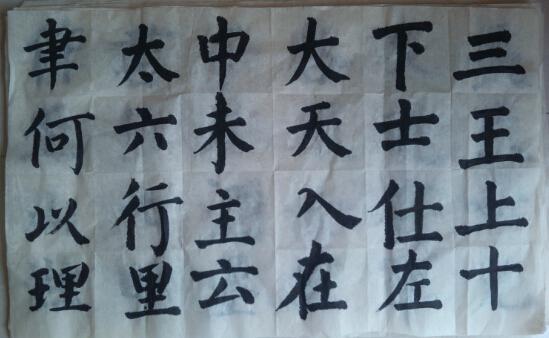 三王上十
下士仕左
大天入在
中未主云
太六行里
聿何以理